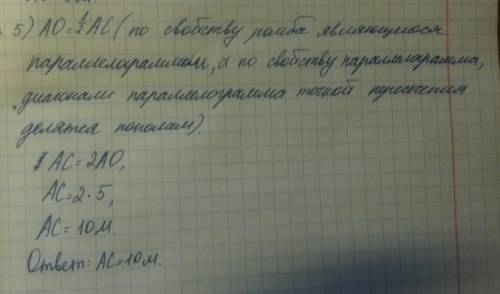 5) AO=½AC (по свойству ромба являющегося
параллелограммом, а по свойству параллелограмма,
диагонали параллелограмма точкой пересечения
делятся пополам).
AC=2AO,
AC=2·5,
AC=10м.
Ответ: AC=10м.